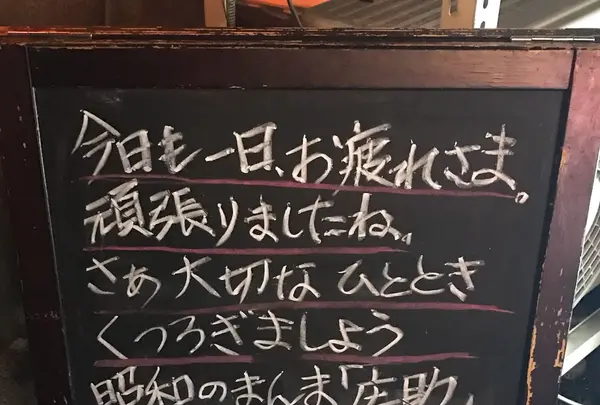 今日も一日、お疲れさま。
頑張りましたね。
さぁ大切なひととき
くつろぎましょう
昭和のまんま「庄助」